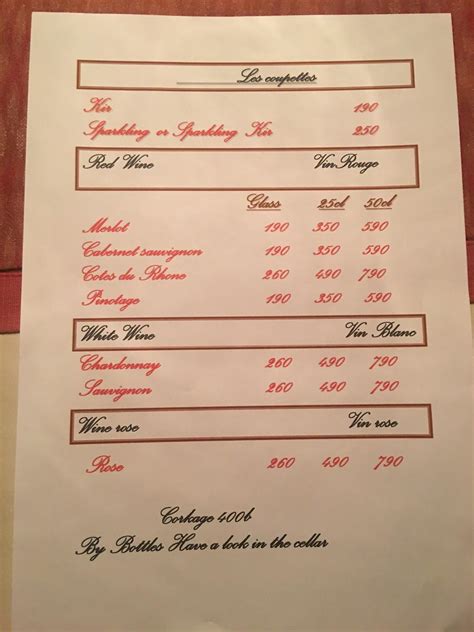 Les coupettes
Kir 190
Sparkling or Sparkling Kir 250
Red Wine Vin Rouge
Glass 25cl 50cl
Merlot 190 350 590
Cabernet sauvignon 190 350 590
Cotes du Rhone 260 490 790
Pinotage 190 350 590
White Wine Vin Blanc
Chardonnay 260 490 790
Sauvignon 260 490 790
Wine rose Vin rose
Rose 260 490 790
Corkage 400b
By Bottles Have a look in the cellar